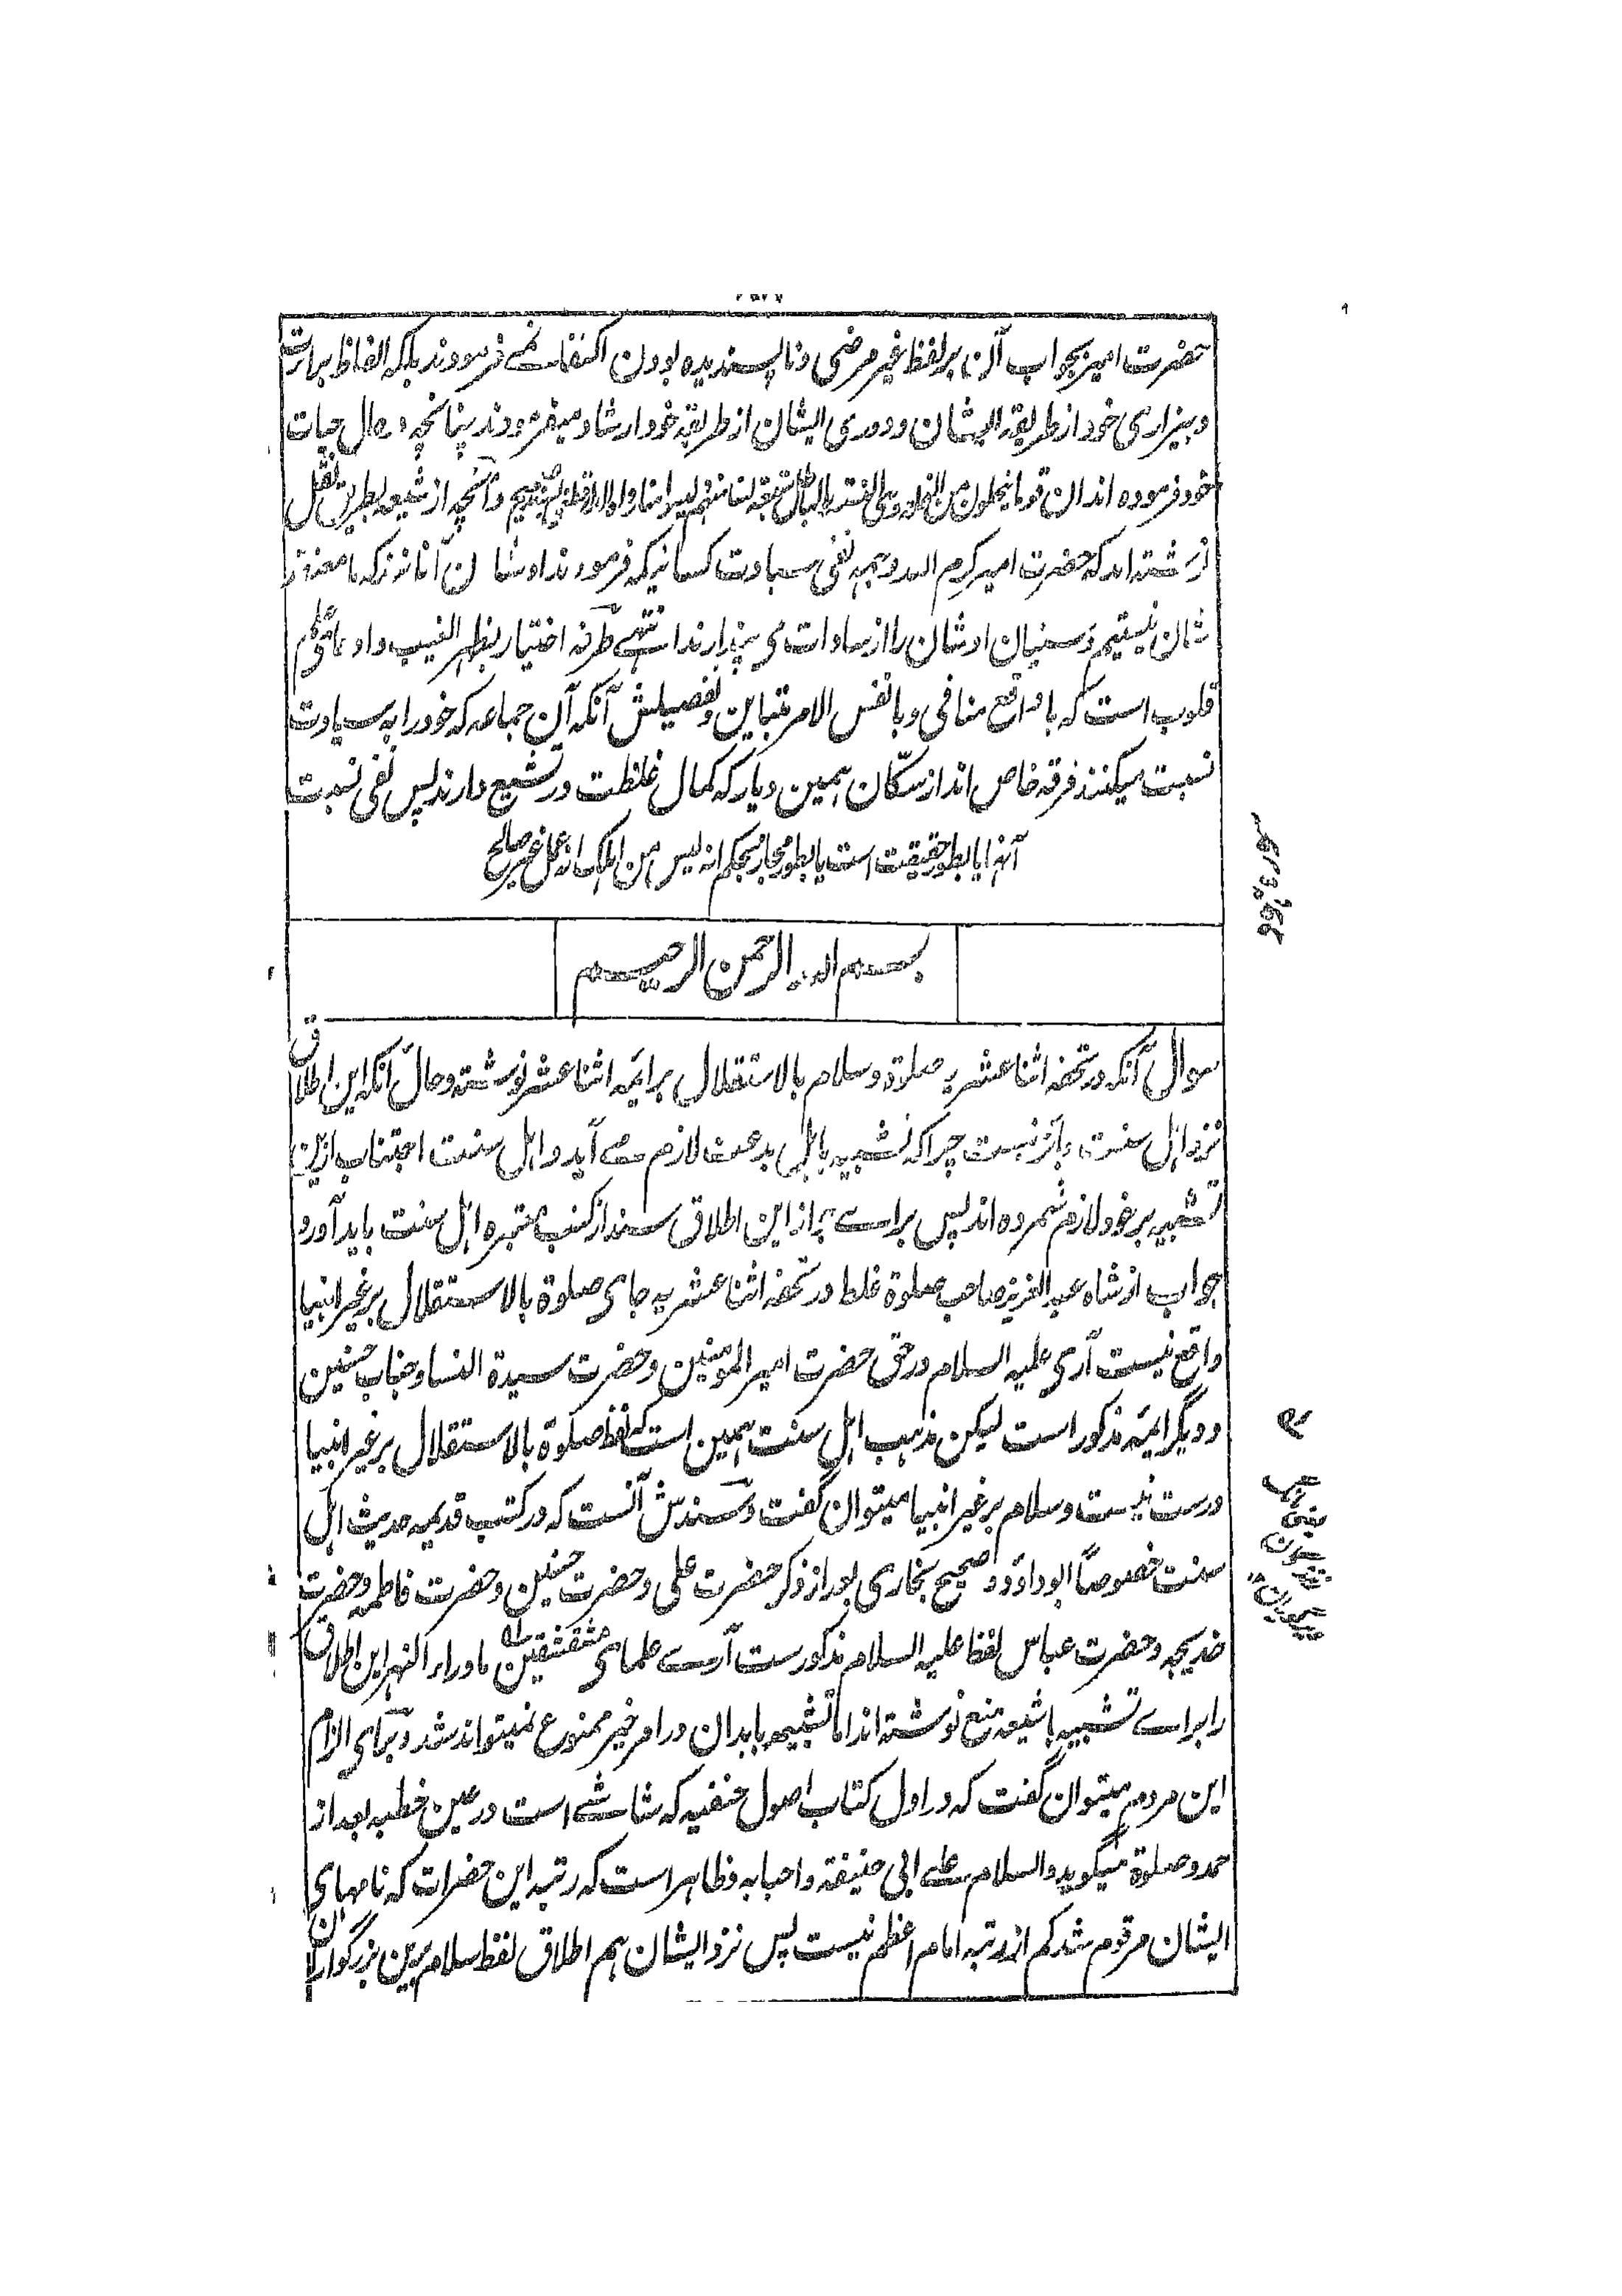 حضرت امیر بجواب آن بر لفظ غیر مرضی و ناپسندیده بودن اکتفا نمے فرمودند بلکه الفاظ برارت
و بیزاری خود از طریقه ایشان و دوری ایشان از طریقه خود ارشاد میفرمودند چنانچه در حال حیات
خود فرموده اند ان قوما و آنچه از شیعه بطریق نقل
نوشته اند که حضرت امیر کرم الله وجهه نفی سیادت کسانیکه فرمودند اوشان آنانند که ما معتقد
شان نیستیم و سنیان اوشان را از سادات می پندارند انتهے طرفه اختیار بظهر الغیب داد
قلوب است که با واقع منافی و با نفس الامر متباین و تفصیلش آنکه آن جماعه که خود را به سیادت
نسبت میکنند فرقه خاص اند از سکّان همین دیار که کمال غلظت در تشیع دارند پس نفی نسبت
آنها یا بطور حقیقت است یا بطور مجاز بحکم انه لیس من اهلک انه عمل غیر صالح
بسم الله الرحمن الرحیم
سوال آنکه در تحفه اثنا عشریه صلوة و سلام بالاستقلال بر ایمه اثنا عشر نوشته و حال آنکه این اطلاق
نزد اهل سنت جائز نیست چرا که تشبیه باهل بدعت لازم مے آید و اهل سنت اجتناب ازین
تشبیه بر خود لازم شمرده اند پس براے جواز این اطلاق سند از کتب معتبره اهل سنت باید آورد
جواب از شاه عبد العزیز صاحب صلوة غلط در تحفه اثنا عشریه جای صلوة بالاستقلال بر غیر انبیا
واقع نیست آری علیه السلام در حق حضرت امیر المومنین و حضرت سیدة النسا و جناب حسنین
و دیگر ایمه مذکور است لیکن مذهب اهل سنت همین است که لفظ صلوة بالاستقلال بر غیر انبیا
درست نیست و سلام بر غیر انبیا میتوان گفت و سندش آنست که در کتب قدیمه حدیث اهل
سنت خصوصاً ابوداؤد و صحیح بخاری بعد از ذکر حضرت علی و حضرت حسنین و حضرت فاطمه و حضرت
خدیجه و حضرت عباس لفظ علیه السلام مذکور ست آرے علمای متقشفین ماوراء النهر این اطلاق
را براے تشبیه با شیعه منع نوشته اند اما تشبیه با بدان در امر خیر ممنوع نمیتواند شد و برای الزام
این مردم میتوان گفت که در اول کتاب اصول حنفیه که شاشے است در عین خطبه بعد از
حمد و صلوة میگوید والسلام علے ابی حنیفة و احبابه و ظاهر است که رتبه این حضرات که نامهای
ایشان مرقوم شد کم از رتبه امام اعظم نیست پس نزد ایشان هم اطلاق لفظ سلام برین بزرگواران